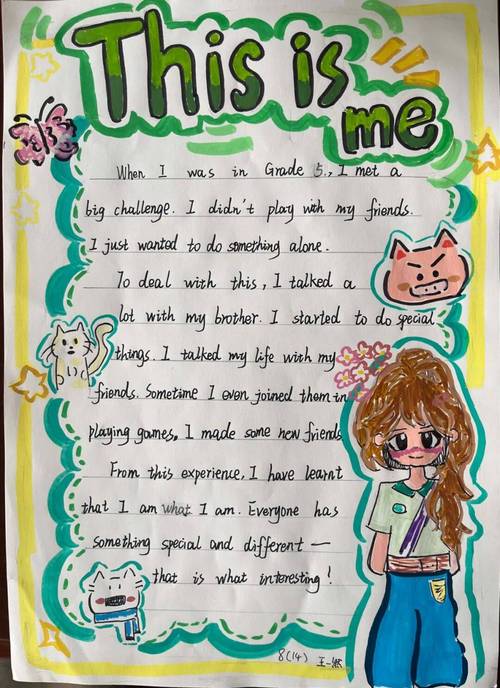 This is
me
When I was in Grade 5, I met a
big challenge. I didn't play with my friends.
I just wanted to do something alone.
To deal with this, I talked a
lot with my brother. I started to do special
things. I talked my life with my
friends. Sometime I even joined them in
playing games. I made some new friends
From this experience, I have learnt
that I am what I am. Everyone has
something special and different —
that is what interesting!
8(14) 王一